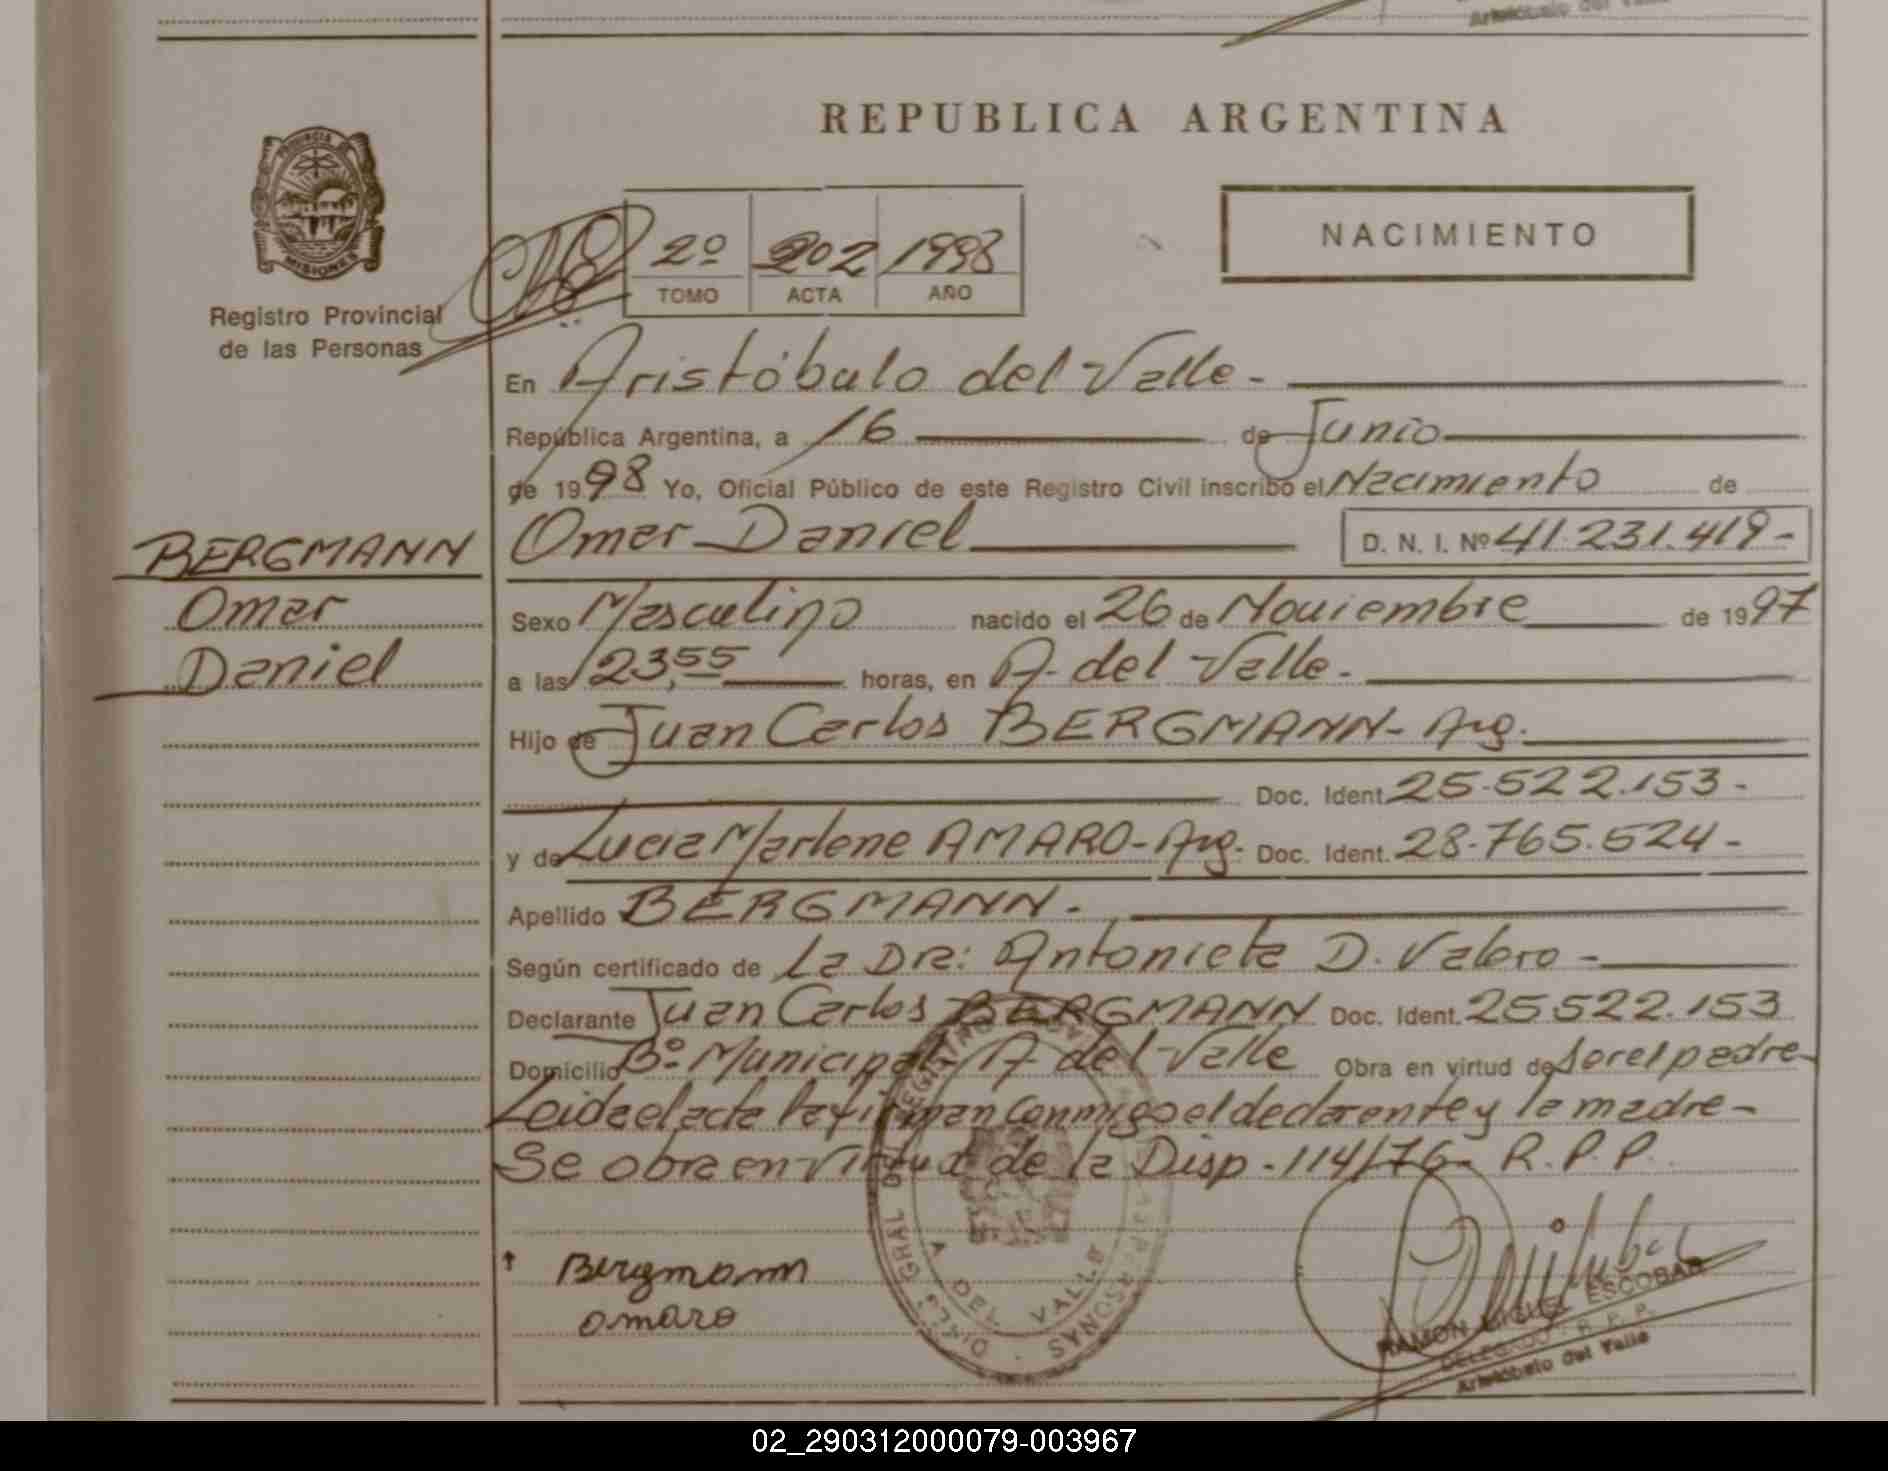 Aristóbulo del Valle
REPUBLICA ARGENTINA
PROVINCIA DE
MISIONES
Registro Provincial
de las Personas
2º 202 1998
TOMO ACTA AÑO
NACIMIENTO
En Aristóbulo del Valle-
República Argentina, a 16 de Junio
de 1998 Yo, Oficial Público de este Registro Civil inscribo el Nacimiento de
BERGMANN
Omar Daniel D. N. I. Nº 41.231.419-
Omar
Sexo Masculino nacido el 26 de Noviembre de 1997
Daniel
a las 23,55 horas, en A. del Valle.-
Hijo de Juan Carlos BERGMANN- Arg.
Doc. Ident. 25.522.153-
y de Lucia Marlene AMARO- Arg. Doc. Ident. 28.765.524-
Apellido BERGMANN.-
Según certificado de La Dra: Antonieta D. Valero-
Declarante Juan Carlos BERGMANN Doc. Ident. 25522.153
Domicilio Bº Municipal A del Valle Obra en virtud de ser el padre-
Leida el acta la firman conmigo el declarante y la madre-
Se obra en virtud de la Disp. 114/76- R.P.P.
Bergmann
amaro
DIREC. GRAL DEL REGISTRO PROV. DE LAS PERSONAS
A. DEL VALLE
RAMON MIGUEL ESCOBAR
DELEGADO R. P. P.
Aristóbulo del Valle
02_290312000079-003967